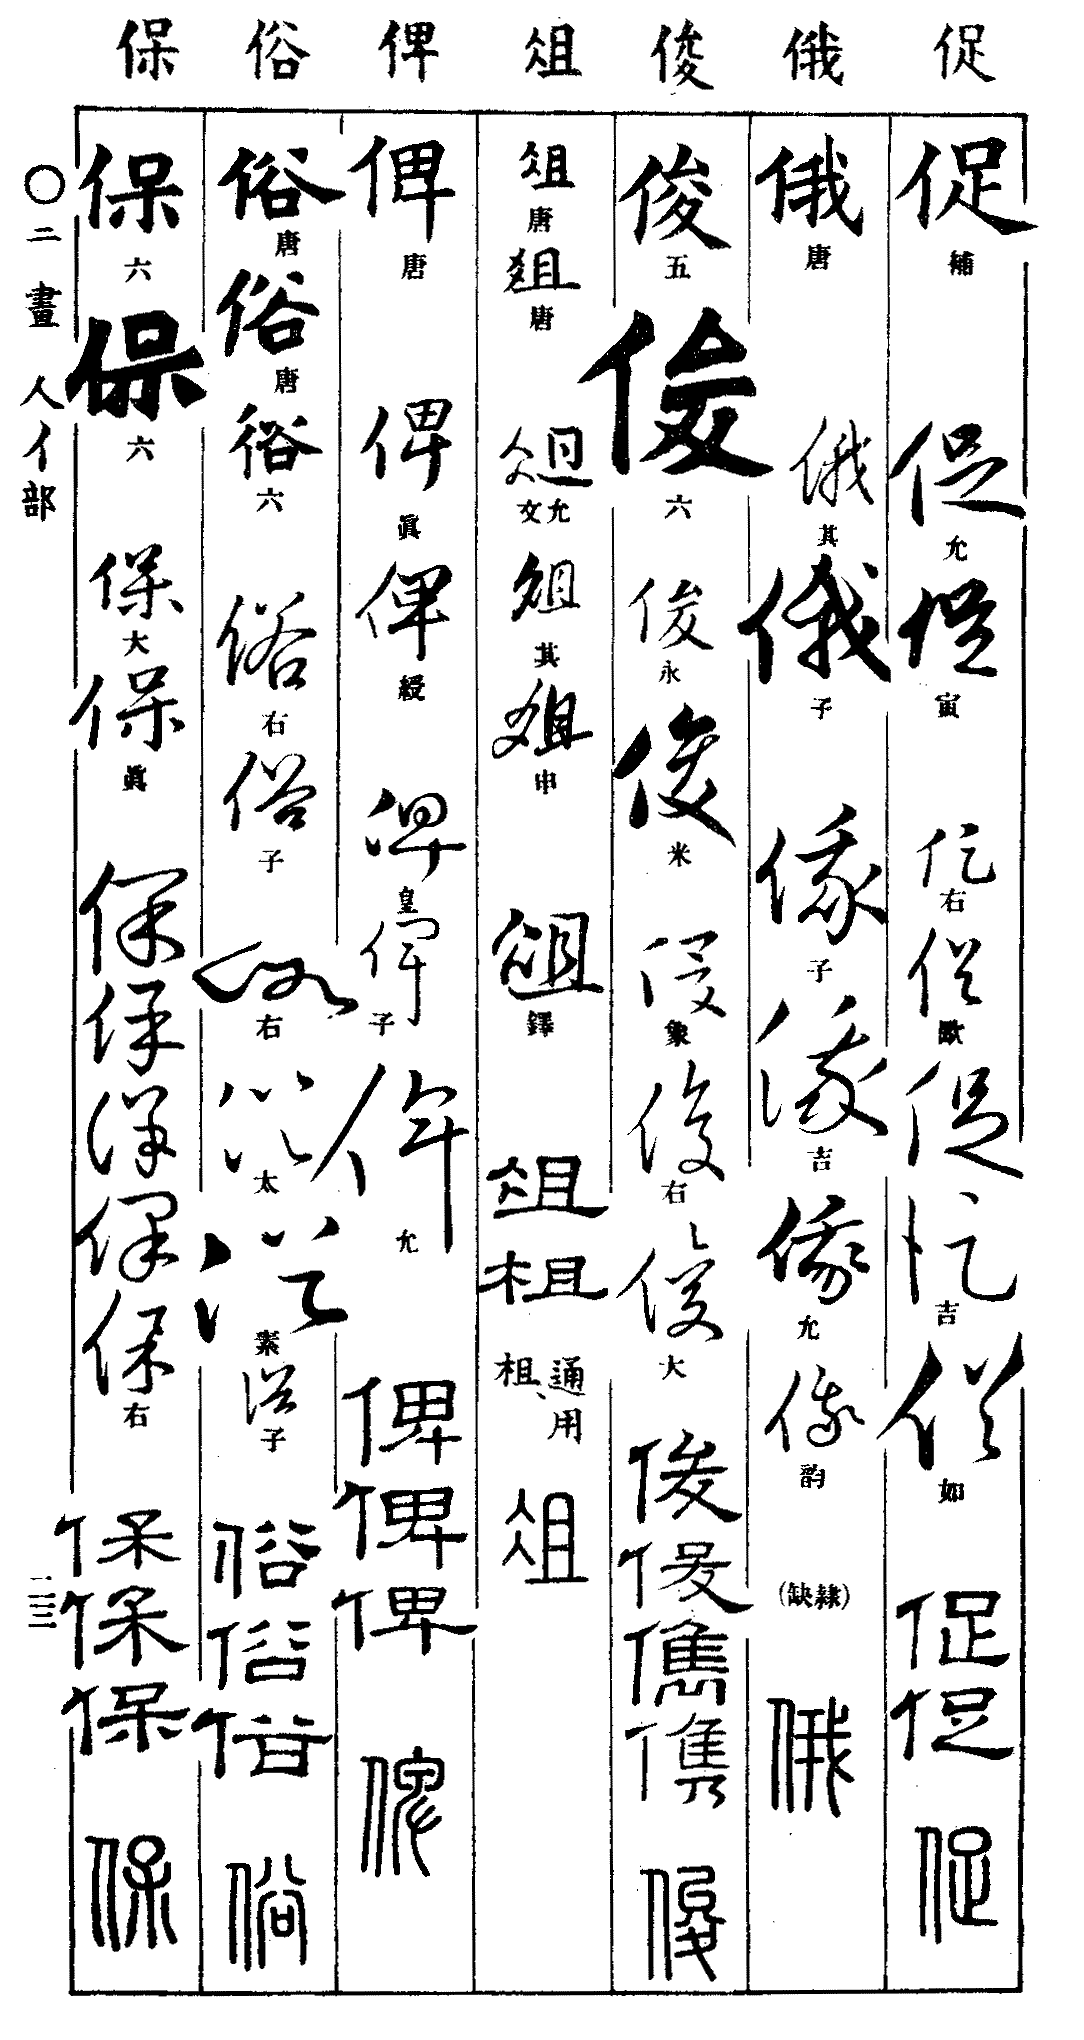 促 俄 俊 俎 俾 俗 保
促 補
促 允
促 寅
促 右
促 歐
促
促 吉
促 如
促
促
促
俄 唐
俄 其
俄 子
俄 子
俄 吉
俄 允
俄 韵
(缺隸)
俄
俊 五
俊 六
俊 永
俊 米
俊 象
俊 右
俊 大
俊
俊
儁
儁
俊
俎 唐
俎 唐
俎 允文
俎 其
俎 申
俎 鐸
俎
柤
通用柤、
俎
俾 唐
俾 眞
俾 綬
俾 皇
俾 子
俾 允
俾
俾
俾
俾
俗 唐
俗 唐
俗 六
俗 右
俗 子
俗 右
俗 太
俗 素
俗 子
俗
俗
俗
俗
保 六
保 六
保 大
保 眞
保
保
保
保
保 右
保
保
保
保
〇二畫 人亻部
二三